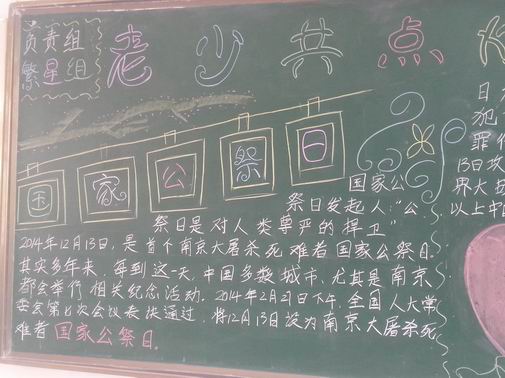 负责组
繁星组
老少共点
国家公祭日
国家公
祭日发起人:“公
祭日是对人类尊严的捍卫”
2014年12月13日,是首个南京大屠杀死难者国家公祭日.
其实多年来,每到这一天,中国多数城市,尤其是南京
都会举行相关纪念活动.2014年2月27日下午,全国人大常
委会第七次会议表决通过,将12月13日设为南京大屠杀死
难者国家公祭日.
日
犯
罪
13日攻
界大
以上中